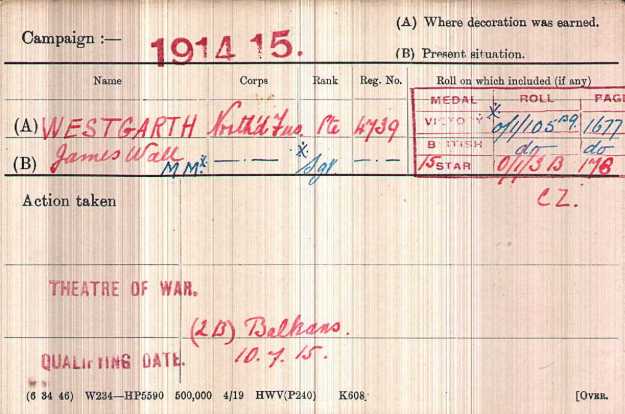 (A) Where decoration was earned.
Campaign :— 1914 15.
(B) Present situation.
Name Corps Rank Reg. No. Roll on which included (if any)
MEDAL ROLL PAGE
(A) WESTGARTH North'd Fus Pte 4739 VICTORY * O/1/105 B9. 1677
BRITISH do do
(B) James Wall M M.* —·—·— * Sgt 15 STAR O/1/3 B 176
Action taken C Z.
THEATRE OF WAR.
(2B) Balkans.
QUALIFYING DATE. 10.7.15.
(6 34 46) W234—HP5590 500,000 4/19 HWV(P240) K608. [OVER.